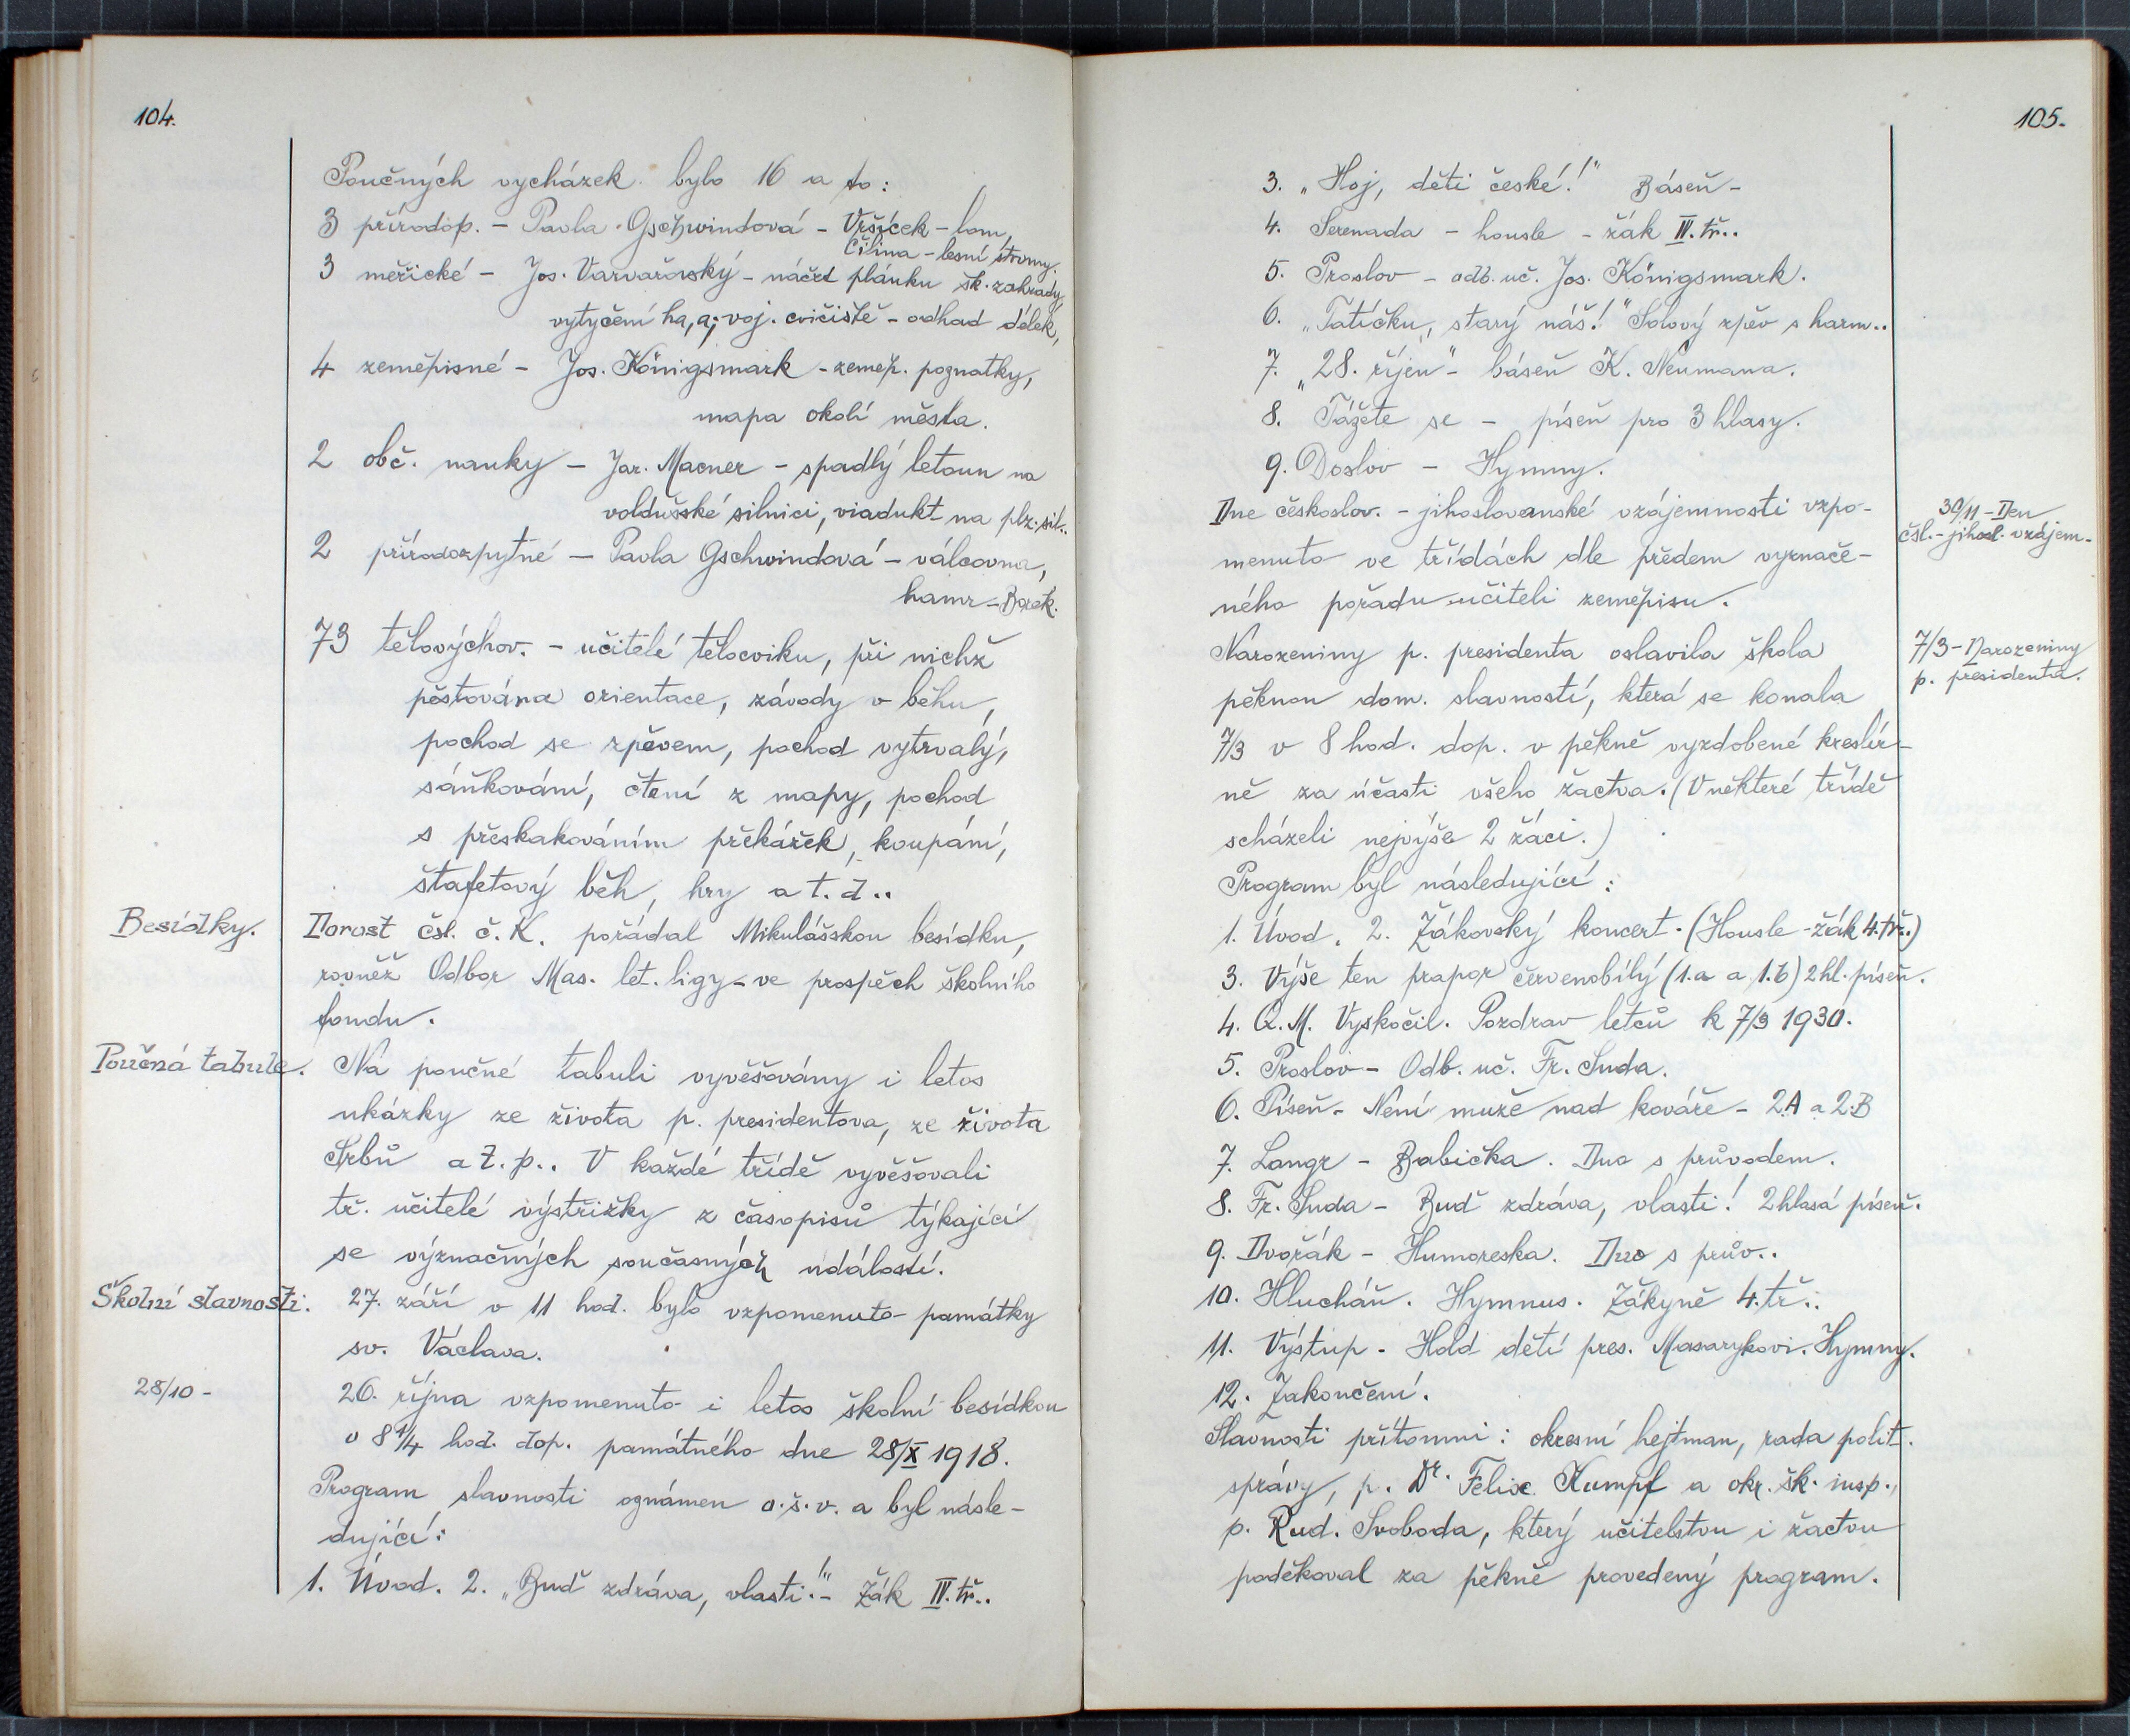 104.
Poučných vycházek bylo 16 a to:
3 přírodop. - Pavla Gschwindová - Vršíček - lom,
Čilina - lesní stromy.
3 měřické - Jos. Varvařovský - náčrt plánku šk. zahrady,
vytyčení ha, a; voj. cvičiště - odhad délek,
4 zeměpisné - Jos. Königsmark - zeměp. poznatky,
mapa okolí města.
2 obč. nauky - Jar. Macner - spadlý letoun na
voldušské silnici, viadukt na plz. sil..
2 přírodozpytné - Pavla Gschwindová - válcovna,
hamr - Borek.
73 tělovýchov. - učitelé tělocviku, při nichž
pěstována orientace, závody v běhu,
pochod se zpěvem, pochod vytrvalý,
sáňkování, čtení z mapy, pochod
s přeskakováním překážek, koupání,
štafetový běh, hry a t. d..
Besídky.
Dorost čsl. č. K. pořádal Mikulášskou besídku,
rovněž Odbor Mas. let. ligy - ve prospěch školního
fondu.
Poučná tabule.
Na poučné tabuli vyvěšovány i letos
ukázky ze života p. presidentova, ze života
Srbů a t. p.. V každé třídě vyvěšovali
tř. učitelé výstřižky z časopisů týkající
se význačných současných událostí.
Školní slavnosti.
27. září v 11 hod. bylo vzpomenuto památky
sv. Václava.
28/10 -
26. října vzpomenuto i letos školní besídkou
v 8 1/4 hod. dop. památného dne 28/X 1918.
Program slavnosti oznámen o. š. v. a byl násle-
dující:
1. Úvod. 2. „Buď zdráva, vlasti!" - Žák IV. tř..
105.
3. „Hoj, děti české!" Báseň -
4. Serenada - housle - žák IV. tř..
5. Proslov - odb. uč. Jos. Königsmark.
6. „Tatíčku, starý náš!" Solový zpěv s harm..
7. „28. říjen" - báseň K. Neumana.
8. Tážete se - píseň pro 3 hlasy.
9. Doslov - Hymny.
Dne českoslov. - jihoslovanské vzájemnosti vzpo-
menuto ve třídách dle předem vyznače-
ného pořadu učiteli zeměpisu.
30/11 - Den
čsl. - jihosl. vzájem.
Narozeniny p. presidenta oslavila škola
pěknou dom. slavností, která se konala
7/3 v 8 hod. dop. v pěkně vyzdobené kreslír-
ně za účasti všeho žactva. (V některé třídě
scházeli nejvýše 2 žáci.)
7/3 - Narozeniny
p. presidenta.
Program byl následující:
1. Úvod. 2. Žákovský koncert. (Housle - žák 4. tř..)
3. Výše ten prapor červenobílý (1.a a 1.b) 2 hl. píseň.
4. Q. M. Vyskočil. Pozdrav letců k 7/3 1930.
5. Proslov - Odb. uč. Fr. Suda.
6. Píseň - Není muže nad kováře - 2.A a 2.B
7. Langr - Babička. Duo s průvodem.
8. Fr. Suda - Buď zdráva, vlasti! 2hlasá píseň.
9. Dvořák - Humoreska. Duo s prův..
10. Hlucháň. Hymnus. Žákyně 4. tř..
11. Výstup - Hold dětí pres. Masarykovi. Hymny.
12. Zakončení.
Slavnosti přítomni: okresní hejtman, rada polit.
správy, p. Dr. Felix Kumpf a okr. šk. insp.,
p. Rud. Svoboda, který učitelstvu i žactvu
poděkoval za pěkně provedený program.